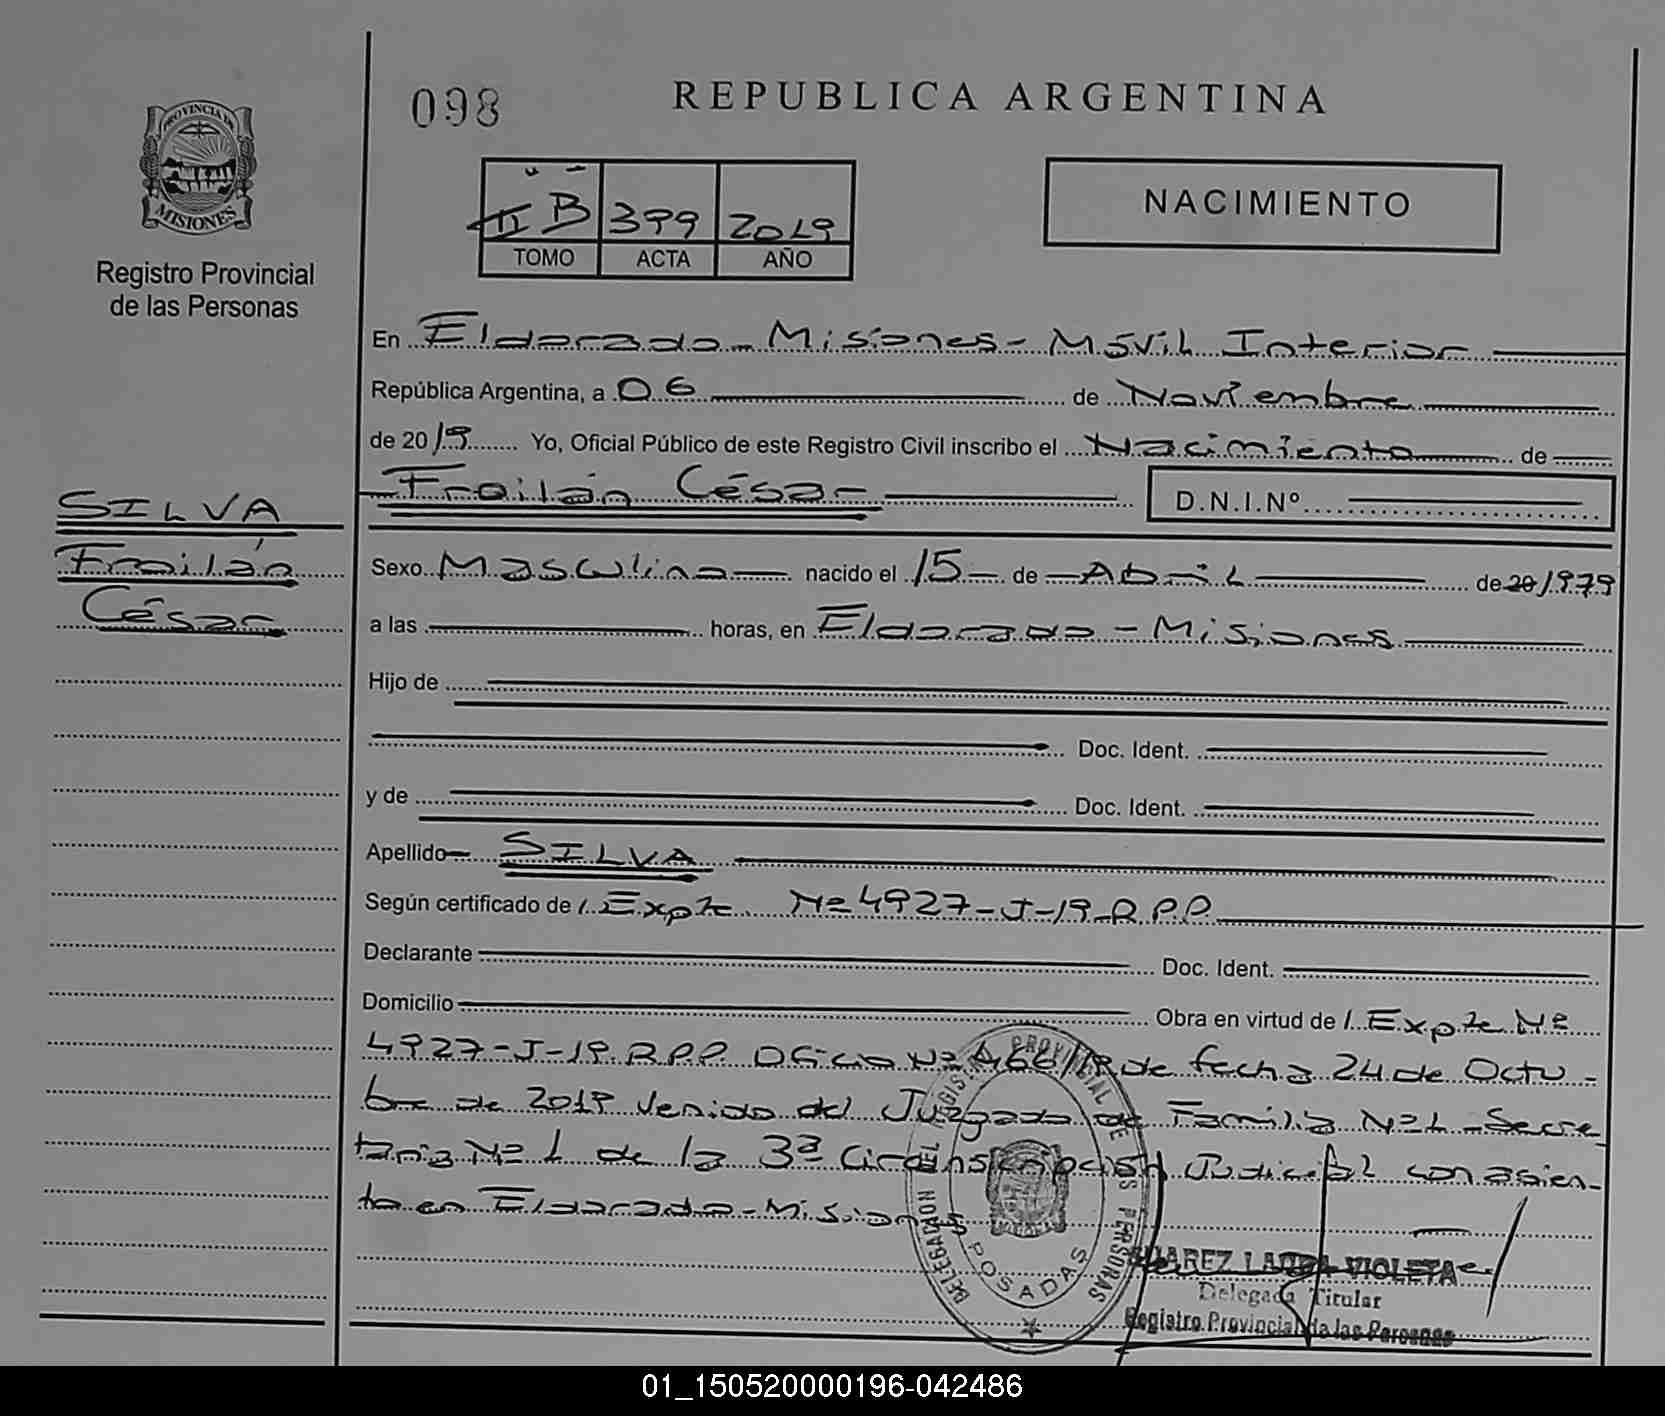 098
REPUBLICA ARGENTINA
PROVINCIA DE
MISIONES
Registro Provincial
de las Personas
II B 399 2019
TOMO ACTA AÑO
NACIMIENTO
En Eldorado - Misiones - Móvil Interior
República Argentina, a 06 de Noviembre
de 2019 Yo, Oficial Público de este Registro Civil inscribo el Nacimiento de
Froilán César D.N.I.Nº
SILVA
Froilán
César
Sexo Masculino nacido el 15 de Abril de 20 1979
a las horas, en Eldorado - Misiones
Hijo de
Doc. Ident.
y de Doc. Ident.
Apellido SILVA
Según certificado de / Expte. Nº 4927-J-19-R.P.P.
Declarante Doc. Ident.
Domicilio Obra en virtud de / Expte Nº
4927-J-19 R.P.P. Oficio Nº 466/19 de fecha 24 de Octu -
bre de 2019 Venido del Juzgado de Familia Nº 1 - Secre
taria Nº 1 de la 3ª Circunscripción Judicial con asien-
to en Eldorado - Misiones
DELEGACION DEL REGISTRO PROVINCIAL DE LAS PERSONAS
POSADAS
SUAREZ LAURA VIOLETA
Delegada Titular
Registro Provincial de las Personas
01_150520000196-042486